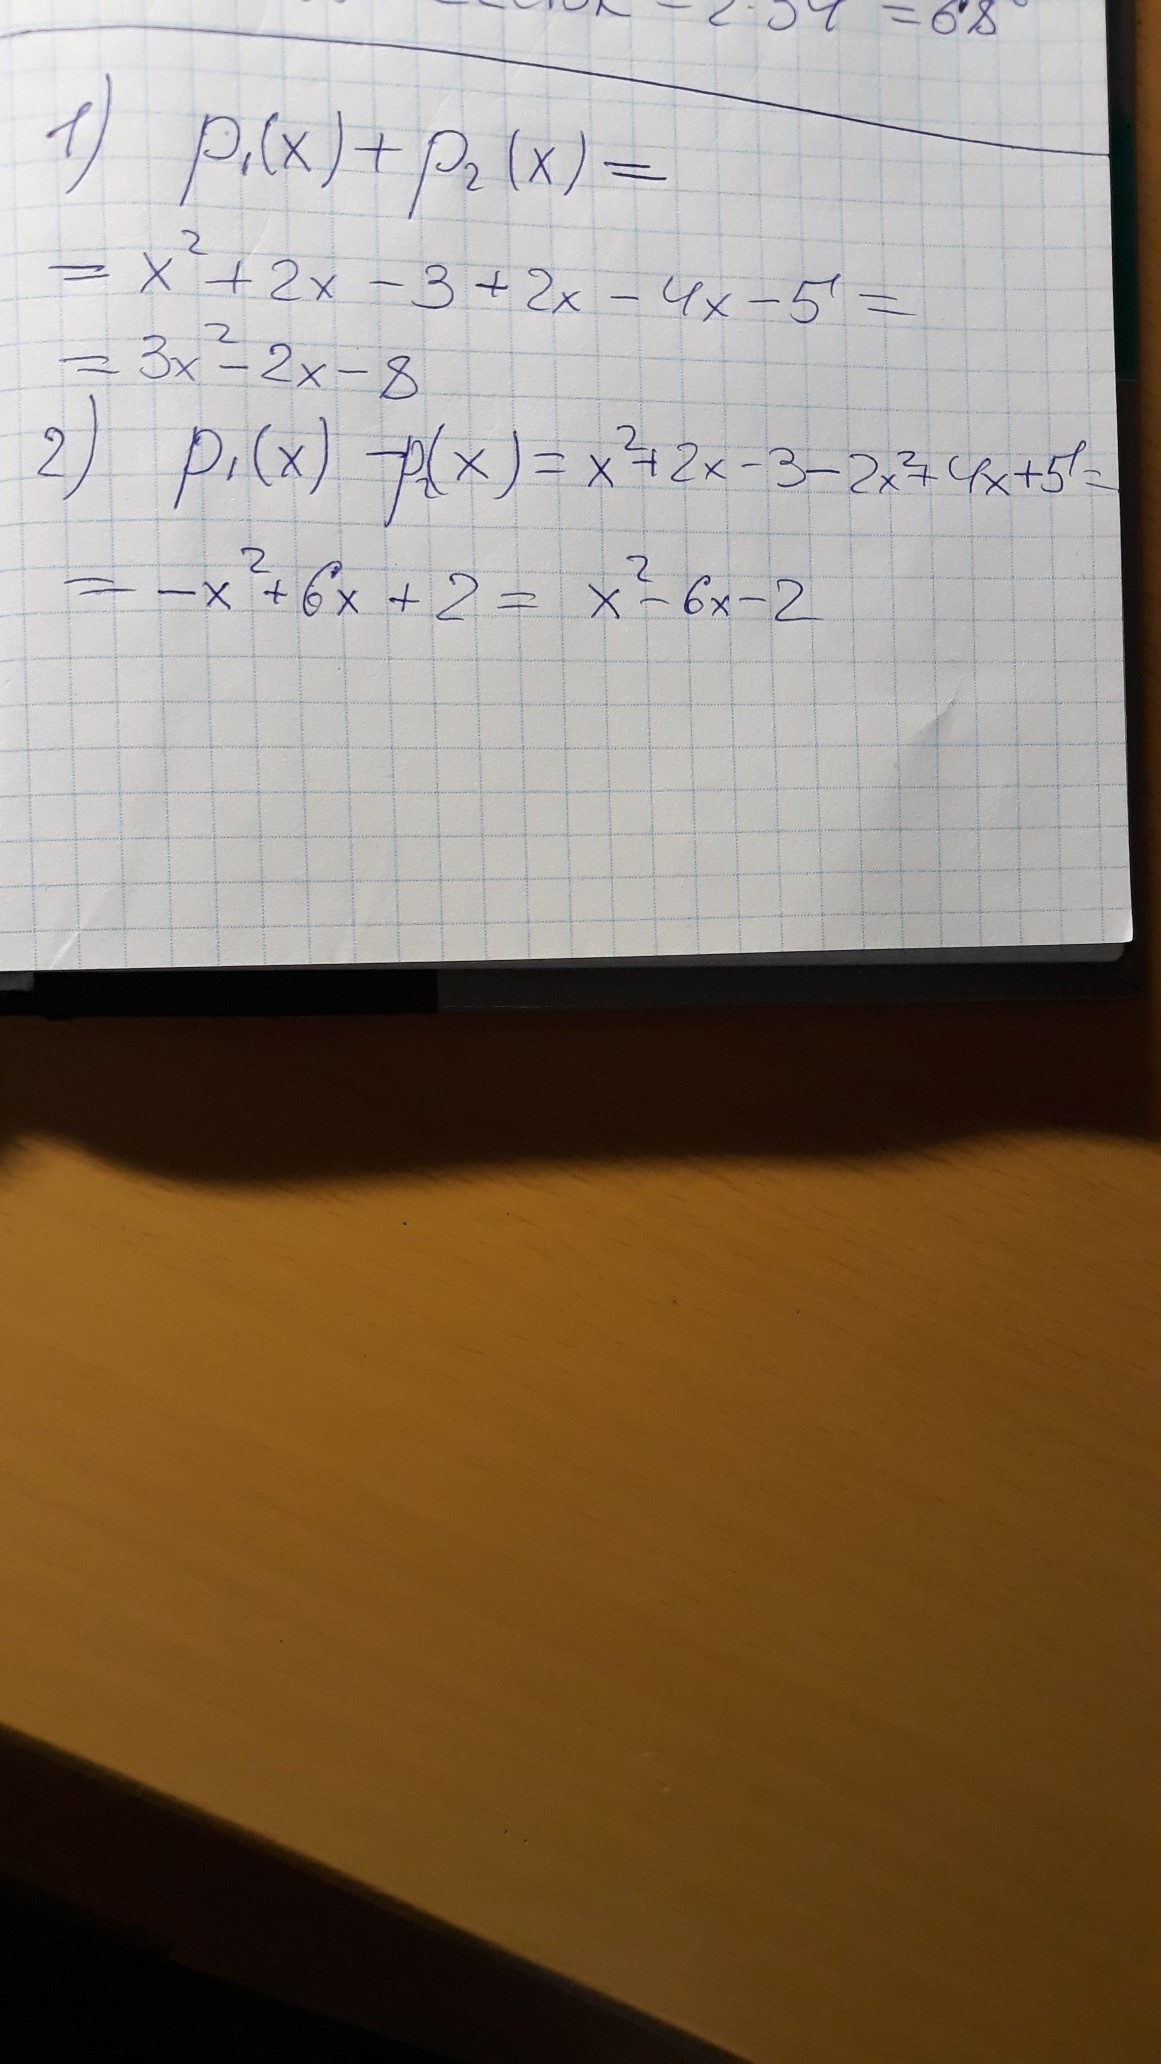 = 2·34 = 68°
1) p₁(x) + p₂(x) =
= x² + 2x - 3 + 2x - 4x - 5 =
= 3x² - 2x - 8
2) p₁(x) - p₂(x) = x² + 2x - 3 - 2x² + 4x + 5 =
= -x² + 6x + 2 = x² - 6x - 2